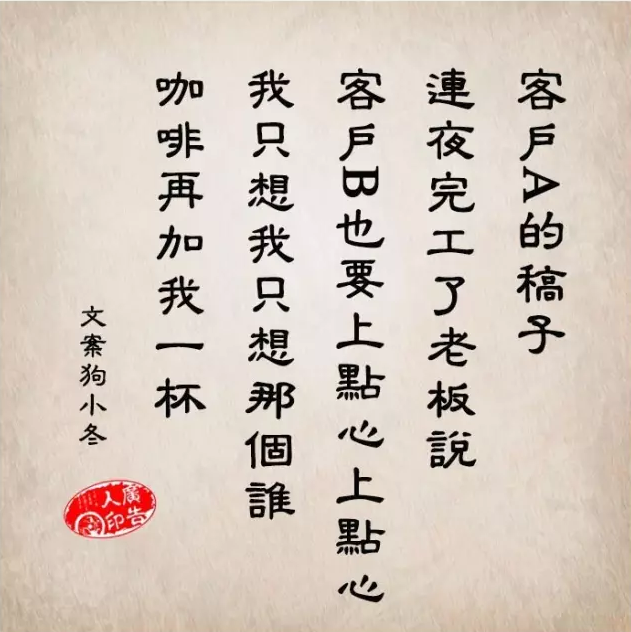 客戶A的稿子
連夜完工了老板說
客戶B也要上點心上點心
我只想我只想那個誰
咖啡再加我一杯
文案狗小冬
廣告
人印